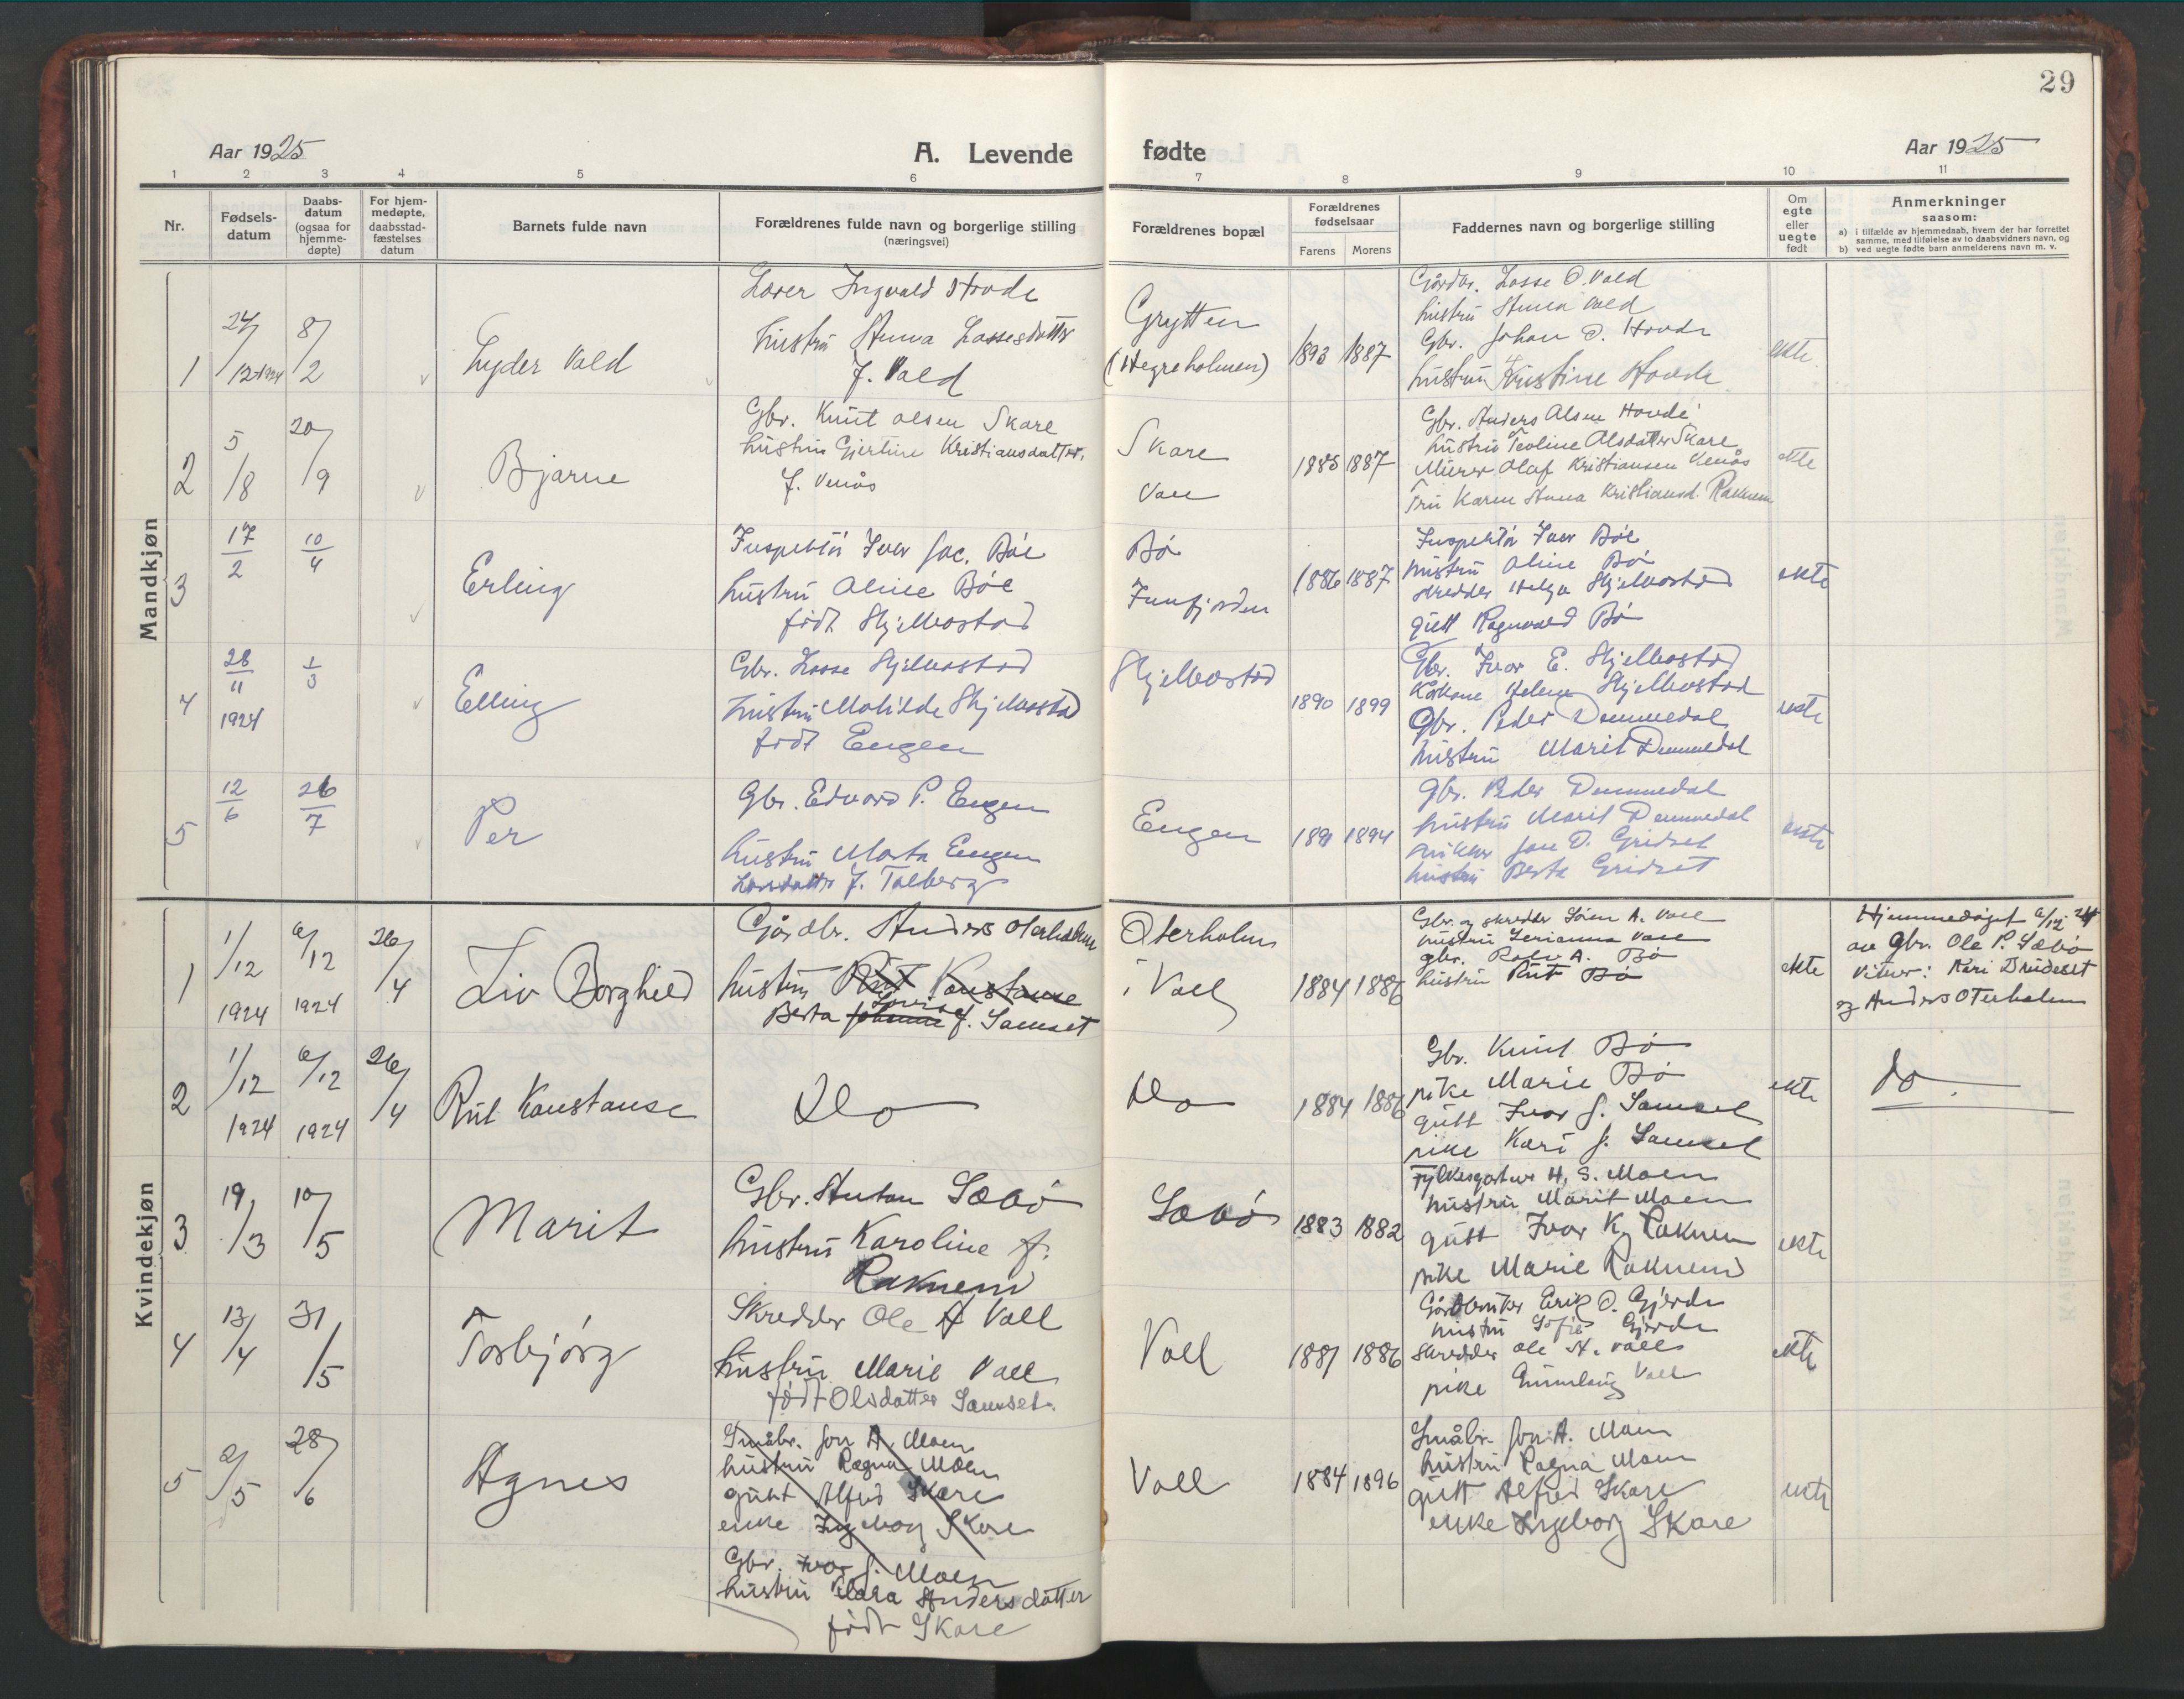 29
Aar 1925
A. Levende fødte
Aar 1925
1 2 3 4 5 6 7 8 9 10 11
Nr.
Fødsels-
datum
Daabs-
datum
(ogsaa for
hjemme-
døpte)
For hjem-
medøpte,
daabsstad-
fæstelses
datum
Barnets fulde navn
Forældrenes fulde navn og borgerlige stilling
(næringsvei)
Forældrenes bopæl
Forældrenes
fødselsaar
Farens Morens
Faddernes navn og borgerlige stilling
Om
egte
eller
uegte
født
Anmerkninger
saasom:
a) i tilfælde av hjemmedaab, hvem der har forrettet
samme, med tilføielse av to daabsvidners navn, og
b) ved uegte fødte barn anmelderens navn m. v.
Mandkjøn
1
24/12 1924
8/2
Lyder Vold
Lærer Ingvald Hovde
hustru Anna Lassesdatter
f. Vold
Grytten
(Hegreholmen)
1893 1887
Gårdbr. Lasse O. Vold
hustru Anna Vold
Gbr. Johan O. Hovde
hustru Kristine Hovde
ekte
2
5/8
20/9
Bjarne
Gbr. Knut Olsen Skare
hustru Gjertine Kristiansdatter
f. Venås
Skare
Voll
1885 1887
Gbr. Anders Olsen Hovde
hustru Teoline Olsdatter Skare
Murer Olaf Kristiansen Venås
Fru Karen Anna Kristiansd. Raknem
ekte
3
17/2
10/4
Erling
Inspektör Iver Jac. Böe
hustru Oline Böe
födt Hjelvostad
Bö
Innfjorden
1886 1887
Inspektör Iver Böe
hustru Oline Bö
skredder Helge Hjelvostad
gutt Ragnvald Bö
ekte
4
28/11
1924
1/3
Elling
Gbr. Lasse Hjelvostad
hustru Matilde Hjelvostad
födt Engen
Hjelvostad
1890 1899
Gbr. Ivar E. Hjelvostad
Kårkone Helene Hjelvostad
Gbr. Peder Dommedal
hustru Marit Dommedal
ekte
5
12/6
26/7
Per
Gbr. Edvard P. Engen
hustru Marta Engen
Larsdatter f. Talberg
Engen
1891 1894
Gbr. Peder Dommedal
hustru Marit Dommedal
snikker Jon O. Gridset
hustru Berta Gridset
ekte
Kvindekjøn
1
1/12
1924
6/12
1924
26/4
Liv Borghild
Gårdbr. Anders Oterholm
hustru Rut Konstanse
Berta Johanne Lovise f. Samset
Oterholm
i Voll
1884 1886
Gbr. og skredder Sören A. Voll
hustru Serianna Voll
gbr. Rolv A. Bö
hustru Rut Bö
ekte
Hjemmedöpt 6/12 24
av Gbr. Ole P. Sæbö
Vitner: Kari Brudeset
og Anders Oterholm
2
1/12
1924
6/12
1924
26/4
Rut Konstanse
Do
Do
1884 1886
Gbr. Knut Bö
pike Marie Bö
gutt Ivar J. Samset
pike Kari J. Samset
ekte
do.
3
19/3
10/5
Marit
Gbr. Anton Sæbö
hustru Karoline f.
Raknem
Sæbö
1883 1882
Fylkesgartner H. S. Moen
hustru Marit Moen
gutt Ivar K. Raknem
pike Marie Raknem
ekte
4
13/4
31/5
Torbjörg
Skredder Ole A Voll
hustru Marie Voll
födt Olsdatter Samset.
Voll
1881 1886
Gårdbruker Erik O. Gjerde
hustru Sofie Gjerde
Skredder Ole A. Voll
pike Gunnlaug Voll
ekte
5
2/5
28/6
Agnes
Småbr. Jon A. Moen
hustru Ragna Moen
gutt Alfred Skare
enke Ingeborg Skare
Gbr. Ivar J. Moen
hustru Klara Andersdatter
födt Skare
Voll
1884 1896
Småbr. Jon A. Moen
hustru Ragna Moen
gutt Alfred Skare
enke Ingeborg Skare
ekte